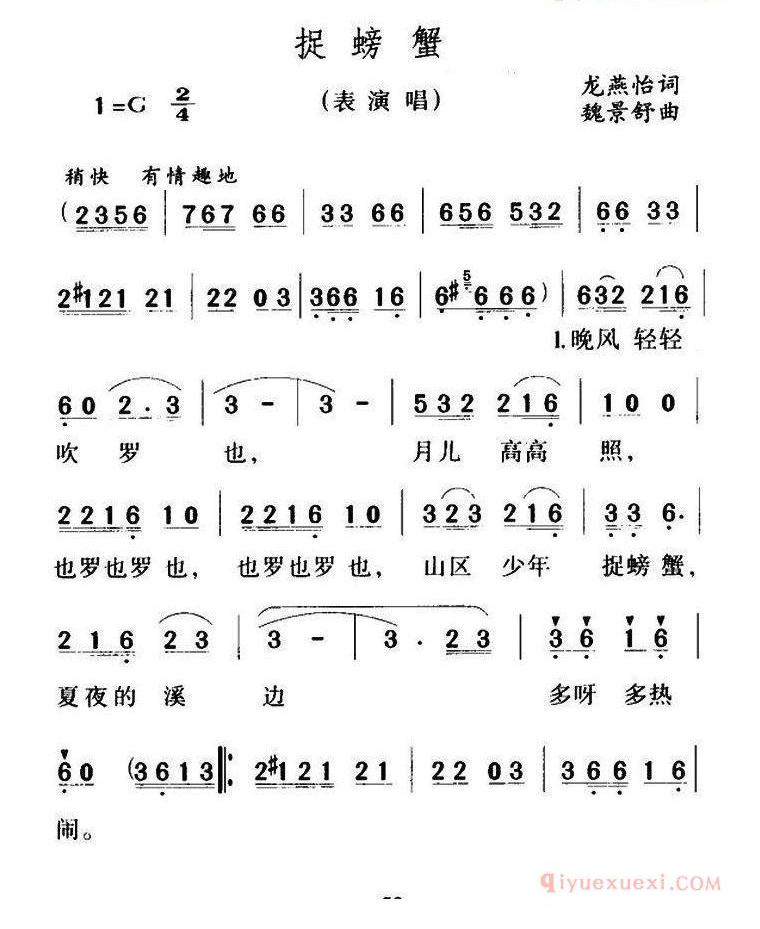 捉螃蟹
1=G 2/4 (表演唱) 龙燕怡词
魏景舒曲
稍快 有情趣地
(2356 | 767 66 | 33 66 | 656 532 | 66 33 |
2#121 21 | 22 03 | 366 16 | 6# 5 666) | 632 216 |
1.晚风 轻轻
60 2.3 | 3 - | 3 - | 532 216 | 100 |
吹 罗 也, 月儿 高高 照,
2216 10 | 2216 10 | 323 216 | 33 6. |
也罗也罗 也, 也罗也罗 也, 山区 少年 捉螃 蟹,
216 23 | 3 - | 3 . 23 | 36 16 |
夏夜的 溪 边 多呀 多热
60 (3613 :| 2#121 21 | 22 03 | 366 16 |
闹。
qiyuexuexi.COM